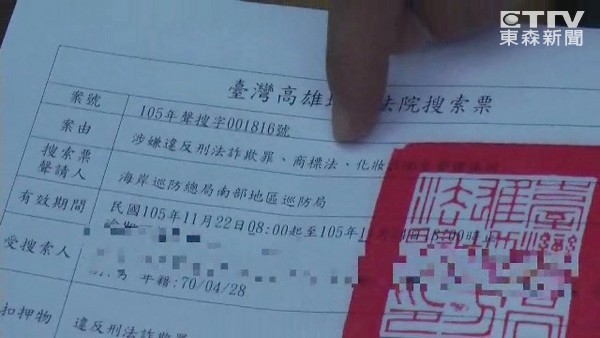 ETTV
東森新聞
臺灣高雄 法院搜索票
案號 105年聲搜字001816號
案由 涉嫌違反刑法詐欺罪、商標法、化妝
搜索票聲請人 海岸巡防總局南部地區巡防局
有效期間 民國105年11月22日08:00起至105年 18:00時止
受搜索人
年籍:70/04/28
扣押物 違反刑法詐欺罪